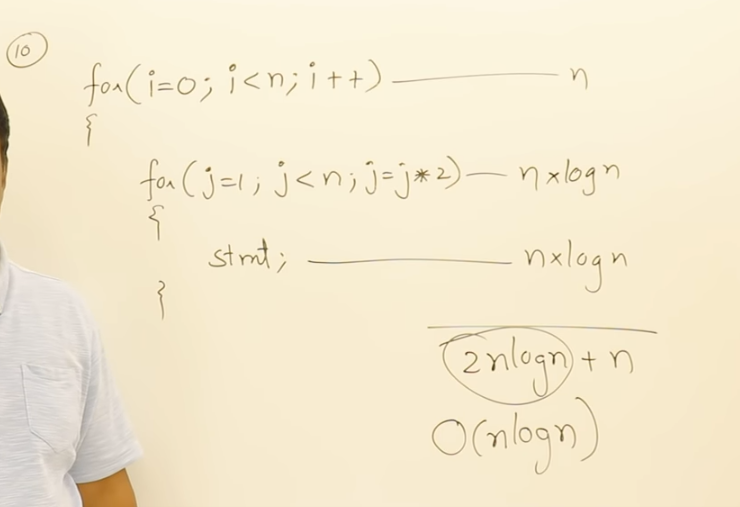 10
for(i=0; i<n; i++) — n
{
for(j=1; j<n; j=j*2) — n×logn
{
stmt; — n×logn
}
2nlogn + n
O(nlogn)